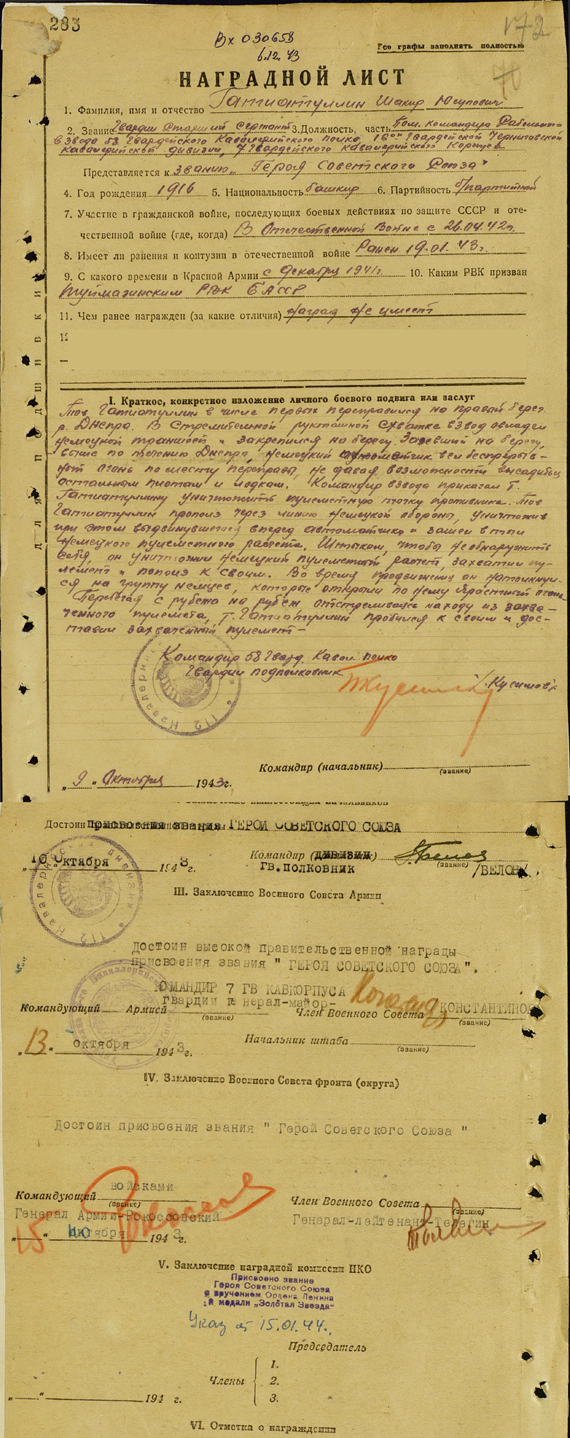 283
Вх 030658
6.12.43
Все графы заполнять полностью
172
70
НАГРАДНОЙ ЛИСТ
1. Фамилия, имя и отчество Гатиатуллин Шакир Юсупович
2. Звание Гвардии Старший Сержант 3. Должность, часть Пом. командира
взвода 58 Гвардейского Кавалерийского полка 16ой Гвардейской Черниговской
Кавалерийской дивизии, 7 Гвардейского Кавалерийского Корпуса
Представляется к званию „Героя Советского Союза"
4. Год рождения 1916 5. Национальность башкир 6. Партийность б/партийный
7. Участие в гражданской войне, последующих боевых действиях по защите СССР и оте-
чественной войне (где, когда) В Отечественной Войне с 26.04.42г.
8. Имеет ли ранения и контузии в отечественной войне Ранен 19.01.43г.
9. С какого времени в Красной Армии с декабря 1941г. 10. Каким РВК призван
Туймазинским РВК БАССР
11. Чем ранее награжден (за какие отличия) Наград не имеет
I. Краткое, конкретное изложение личного боевого подвига или заслуг
Тов. Гатиатуллин в числе первых переправился на правый берег
р. Днепра. В стремительной рукопашной схватке взвод овладел
немецкой траншеей и закрепился на берегу. Засевший на берегу,
выше по течению Днепра, немецкий вел беспрерыв-
ный огонь по месту переправы, не давая возможности высадиться
остальным плотам и лодкам. Командир взвода приказал т.
Гатиатуллину уничтожить пулеметную точку противника. Тов.
Гатиатуллин прополз через линию немецкой обороны, уничтожив
при этом выдвинувшегося вперед автоматчика и зашел в тыл
немецкого пулеметного расчета. Штыком, чтобы не обнаружить
себя, он уничтожил немецкий пулеметный расчет, захватил пу-
лемет и пополз к своим. Во время продвижения он натолкнул-
ся на группу немцев, которые открыли по нему яростный огонь.
Переползая с рубежа на рубеж, отстреливаясь на ходу из захва-
ченного пулемета, т. Гатиатуллин пробился к своим и дос-
тавил захваченный пулемет.-
Командир 58 Гвард. Кавал. полка
Гвардии подполковник
/Кусимов/
Командир (начальник)
(звание)
„9" Октября 1943г.
Достоин присвоения звания ГЕРОЙ СОВЕТСКОГО СОЮЗА
„10" Октября 1943г.
Командир (дивизии)
ГВ.ПОЛКОВНИК (звание) /БЕЛОВ/
III. Заключение Военного Совета Армии
Достоин высокой правительственной награды
присвоения звания " ГЕРОЯ СОВЕТСКОГО СОЮЗА".
КОМАНДИР 7 ГВ КАВКОРПУСА
Гвардии генерал-майор- КОНСТАНТИНОВ
Командующий Армией Член Военного Совета
(звание) (звание)
„13" октября 1943г.
Начальник штаба
(звание)
IV. Заключение Военного Совета фронта (округа)
Достоин присвоения звания " Герой Советского Союза "
Командующий войсками
(звание)
Генерал Армии-Рокоссовский
Член Военного Совета
(звание)
Генерал-лейтенант Телегин
„15" октября 1943г.
V. Заключение наградной комиссии НКО
Присвоено звание
Героя Советского Союза
с вручением Ордена Ленина
и медали „Золотая Звезда"
Указ от 15.01.44.
Председатель
1.
Члены 2.
3.
„ " 194 г.
VI. Отметка о награждении